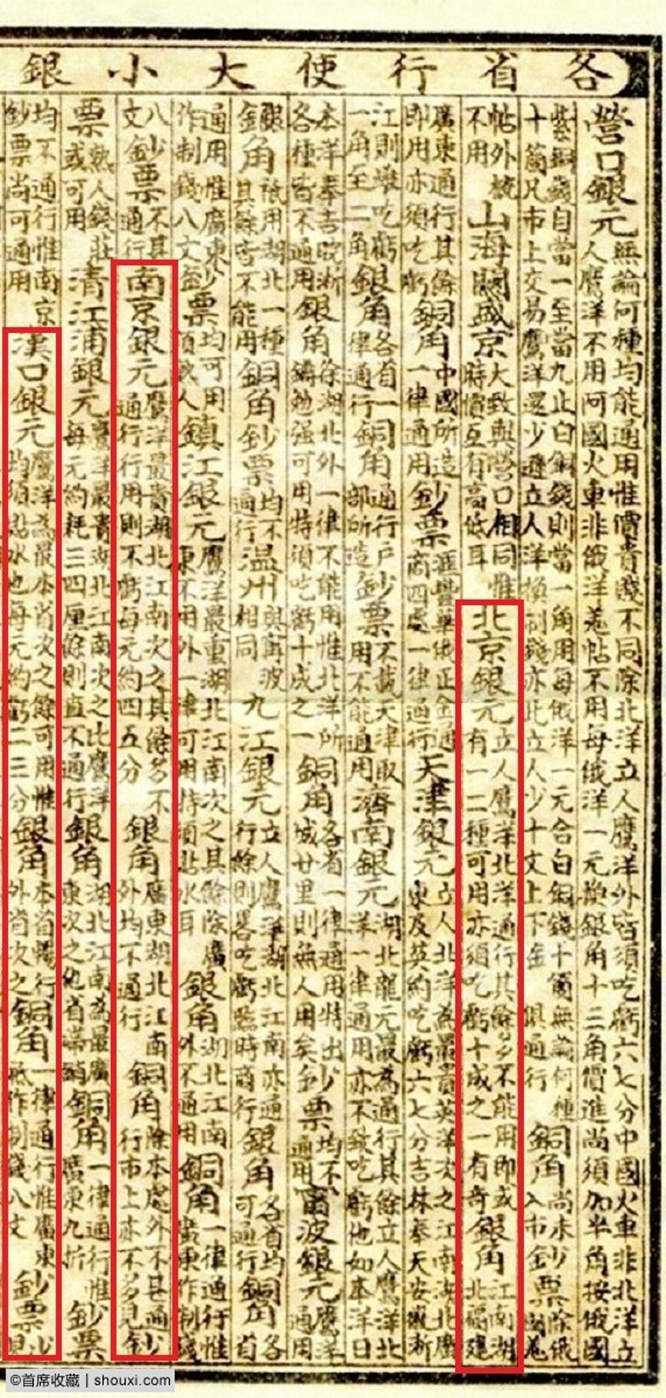 各省行使大小銀
營口銀元無論何種均能通用惟價貴賤不同除北洋立人鷹洋外皆須吃虧六七分中國火車非北洋立人鷹洋不用阿國火車非俄洋羗帖不用每俄洋一元換銀角十三角價進尚須加半角按俄國
紫銅錢自當一至當九止白銅錢則當一角用每俄洋一元合白銅錢十箇無論何種十箇凡市上交易鷹洋還少遜立人洋換制錢亦比立人少十文上下俱通行銅角尚未入市鈔票除俄
帖外概不用山海關盛京大致與營口相同惟時價互有高低耳北京銀元立人鷹洋北洋通行其餘多不能用即或有一二種可用亦須吃虧十成之一有奇銀角江南湖北福建
廣東通行其餘即用亦須吃虧銅角中國所造一律通用鈔票滙豐華俄正金通商四處一律通行天津銀元立人北洋為最貴英洋次之江南湖北廣東及英約吃虧六七分吉林奉天安徽浙
江則堆吃虧一角至二角銀角各省一律通行銅角通行戶部所造鈔票不載天津取用不能通用濟南銀元湖北龍元最為通行其餘立人鷹洋北洋一律通用亦不致吃虧他如本洋日
本洋奉吉皖浙各種皆不通用銀角除湖北外一律不能用惟北洋所鑄勉强可用特須吃虧十成之一銅角各省一律通用特出城廿里則無人用矣鈔票均不通用甯波銀元鷹洋
銀角祇用湖北一種其餘皆不能用銅角鈔票均不通行温州與甯波相同九江銀元立人鷹洋湖北江南亦通行餘則畧吃虧臨時商行銀角各省均可通行銅角各省
通用惟廣東作制錢八文鈔票均可用須熟人鎮江銀元鷹洋最重湖北江南次之其餘除廣東不用外一律可用特須貼水耳銀角湖北江南外不通用銅角一律通行惟廣東作制錢
八文鈔票不甚通行南京銀元鷹洋最貴湖北江南次之其餘多不通行行用則不虧每元約四五分銀角廣東湖北江南外均不通行銅角除本處外不甚通行市上亦不多見鈔
票熟人錢莊或可用清江浦銀元鷹洋最貴湖北江南次之比鷹洋每元約耗三四厘餘則直不通行銀角湖北江南為最廣東次之他省銅角一律通行惟廣東九折鈔票
均不通行惟南京鈔票尚可通用漢口銀元鷹洋為最本省次之餘可用惟均須貼水也每元約虧二三分銀角本省暢行外省次之銅角一律通行惟廣東祇作制錢八文鈔票
©首席收藏 | shouxi.com